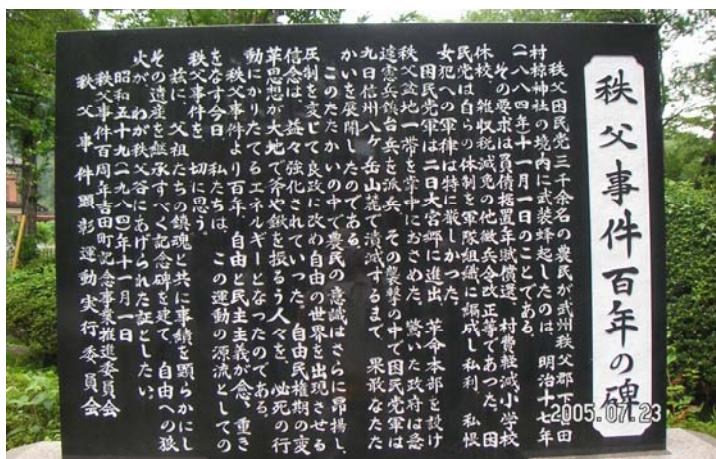 秩父事件百年の碑
秩父困民党三千余名の農民が武州秩父郡下吉田
村椋神社の境内に武装蜂起したのは、明治十七年
(一八八四)年十一月一日のことである。
その要求は負債据置年賦償還、村費軽減、小学校
休校、雑収税減免の他徴兵令改正等であつた。困
民党は自らの体制を軍隊組織に編成し私利、私恨
女犯への軍律は特に厳しかつた。
困民党軍は二日大宮郷に進出、革命本部を設け
秩父盆地一帯を掌中におさめた。驚いた政府は急
遽憲兵鎮台兵を派兵、その襲撃の中で困民党軍は
九日信州八ヶ岳山麓で潰滅するまで、果敢なたた
かいを展開したのである。
このたたかいの中で農民の意識はさらに昂揚し、
圧制を変じて良政に改め自由の世界を出現させる
信念は、益々強化されていった。自由民権期の変
革思想が大地で斧や鍬を振るう人々を、必死の行
動にかりたてるエネルギーとなつたのである。
秩父事件より百年、自由と民主主義が念、重き
をなす今日、私たちは、この運動の源流としての
秩父事件を、切に思う。
茲に、父祖たちの鎮魂と共に事績を顕らかにし
その遺産を継承すべく記念碑を建て、自由への狼
火が、わが秩父谷にあげられた証としたい。
昭和五十九(一九八四)年十一月一日
秩父事件百周年吉田町記念事業推進委員会
秩父事件顕彰運動実行委員会
2005.07.23